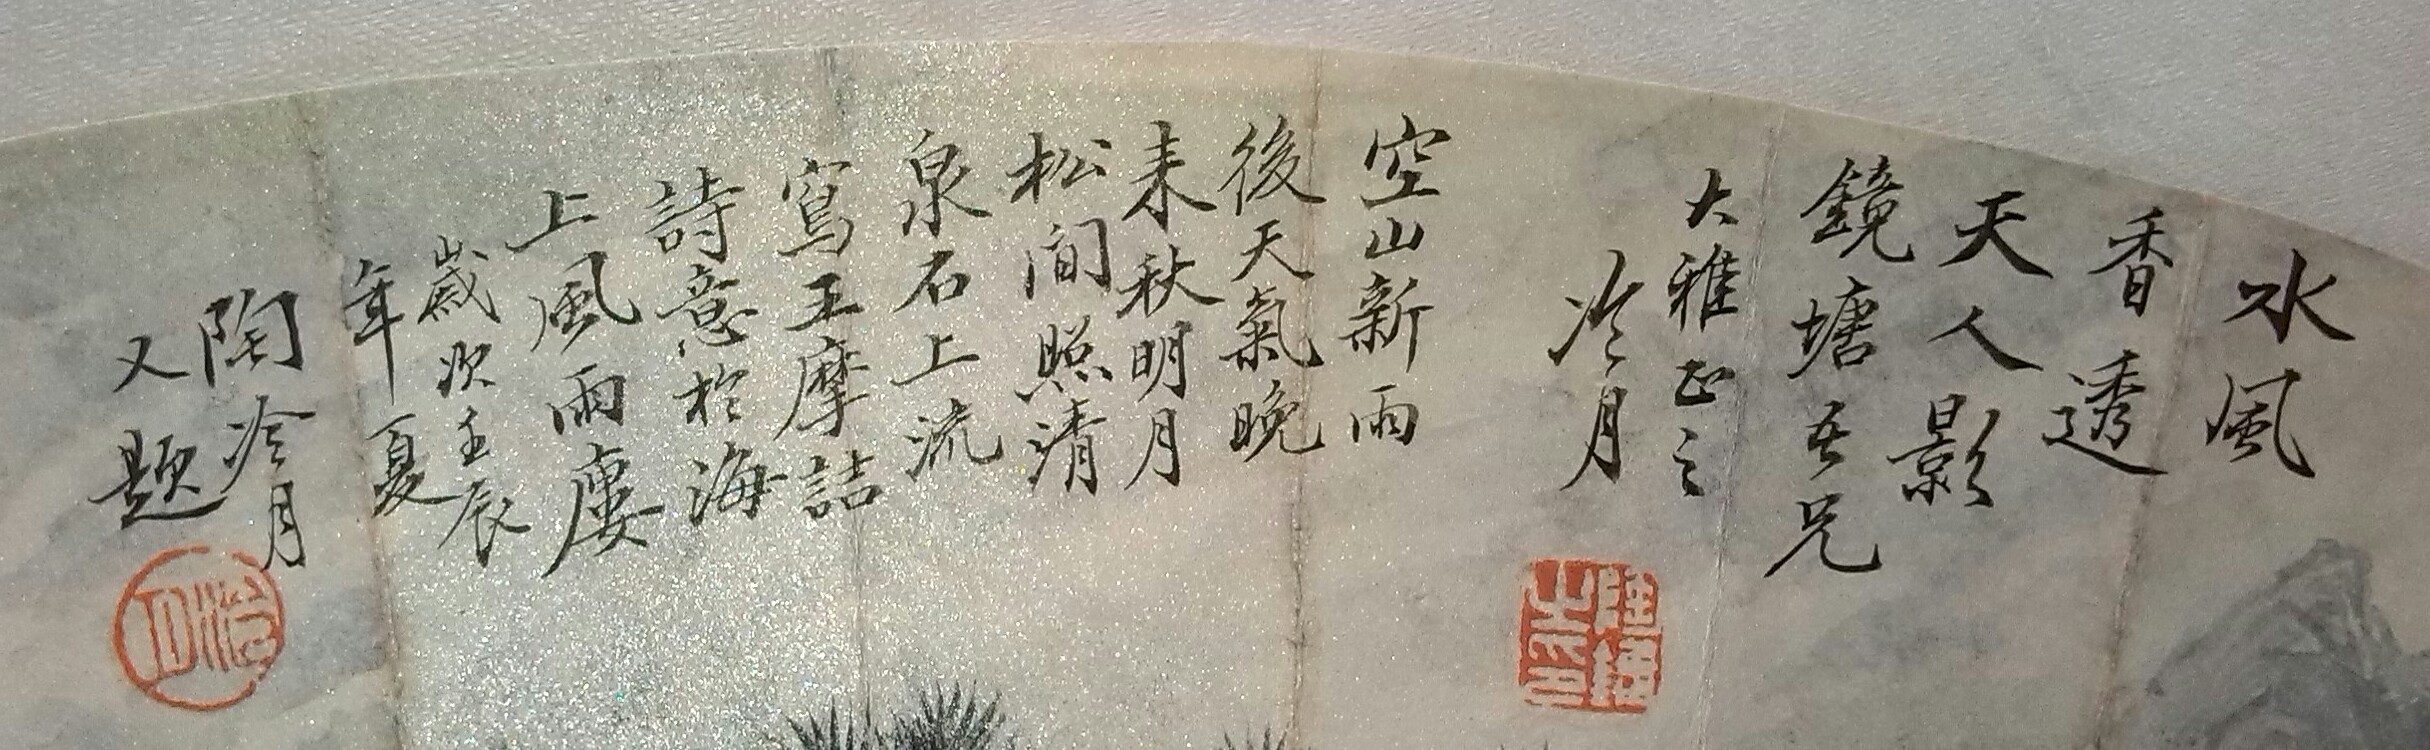 水風
香透
天人影
鏡塘吾兄
大雅正之
冷月
空山新雨
後天氣晚
来秋明月
松間照清
泉石上流
寫王摩詰
詩意於海
上風雨廔
歲次壬辰
年夏
陶冷月
又題
冷月